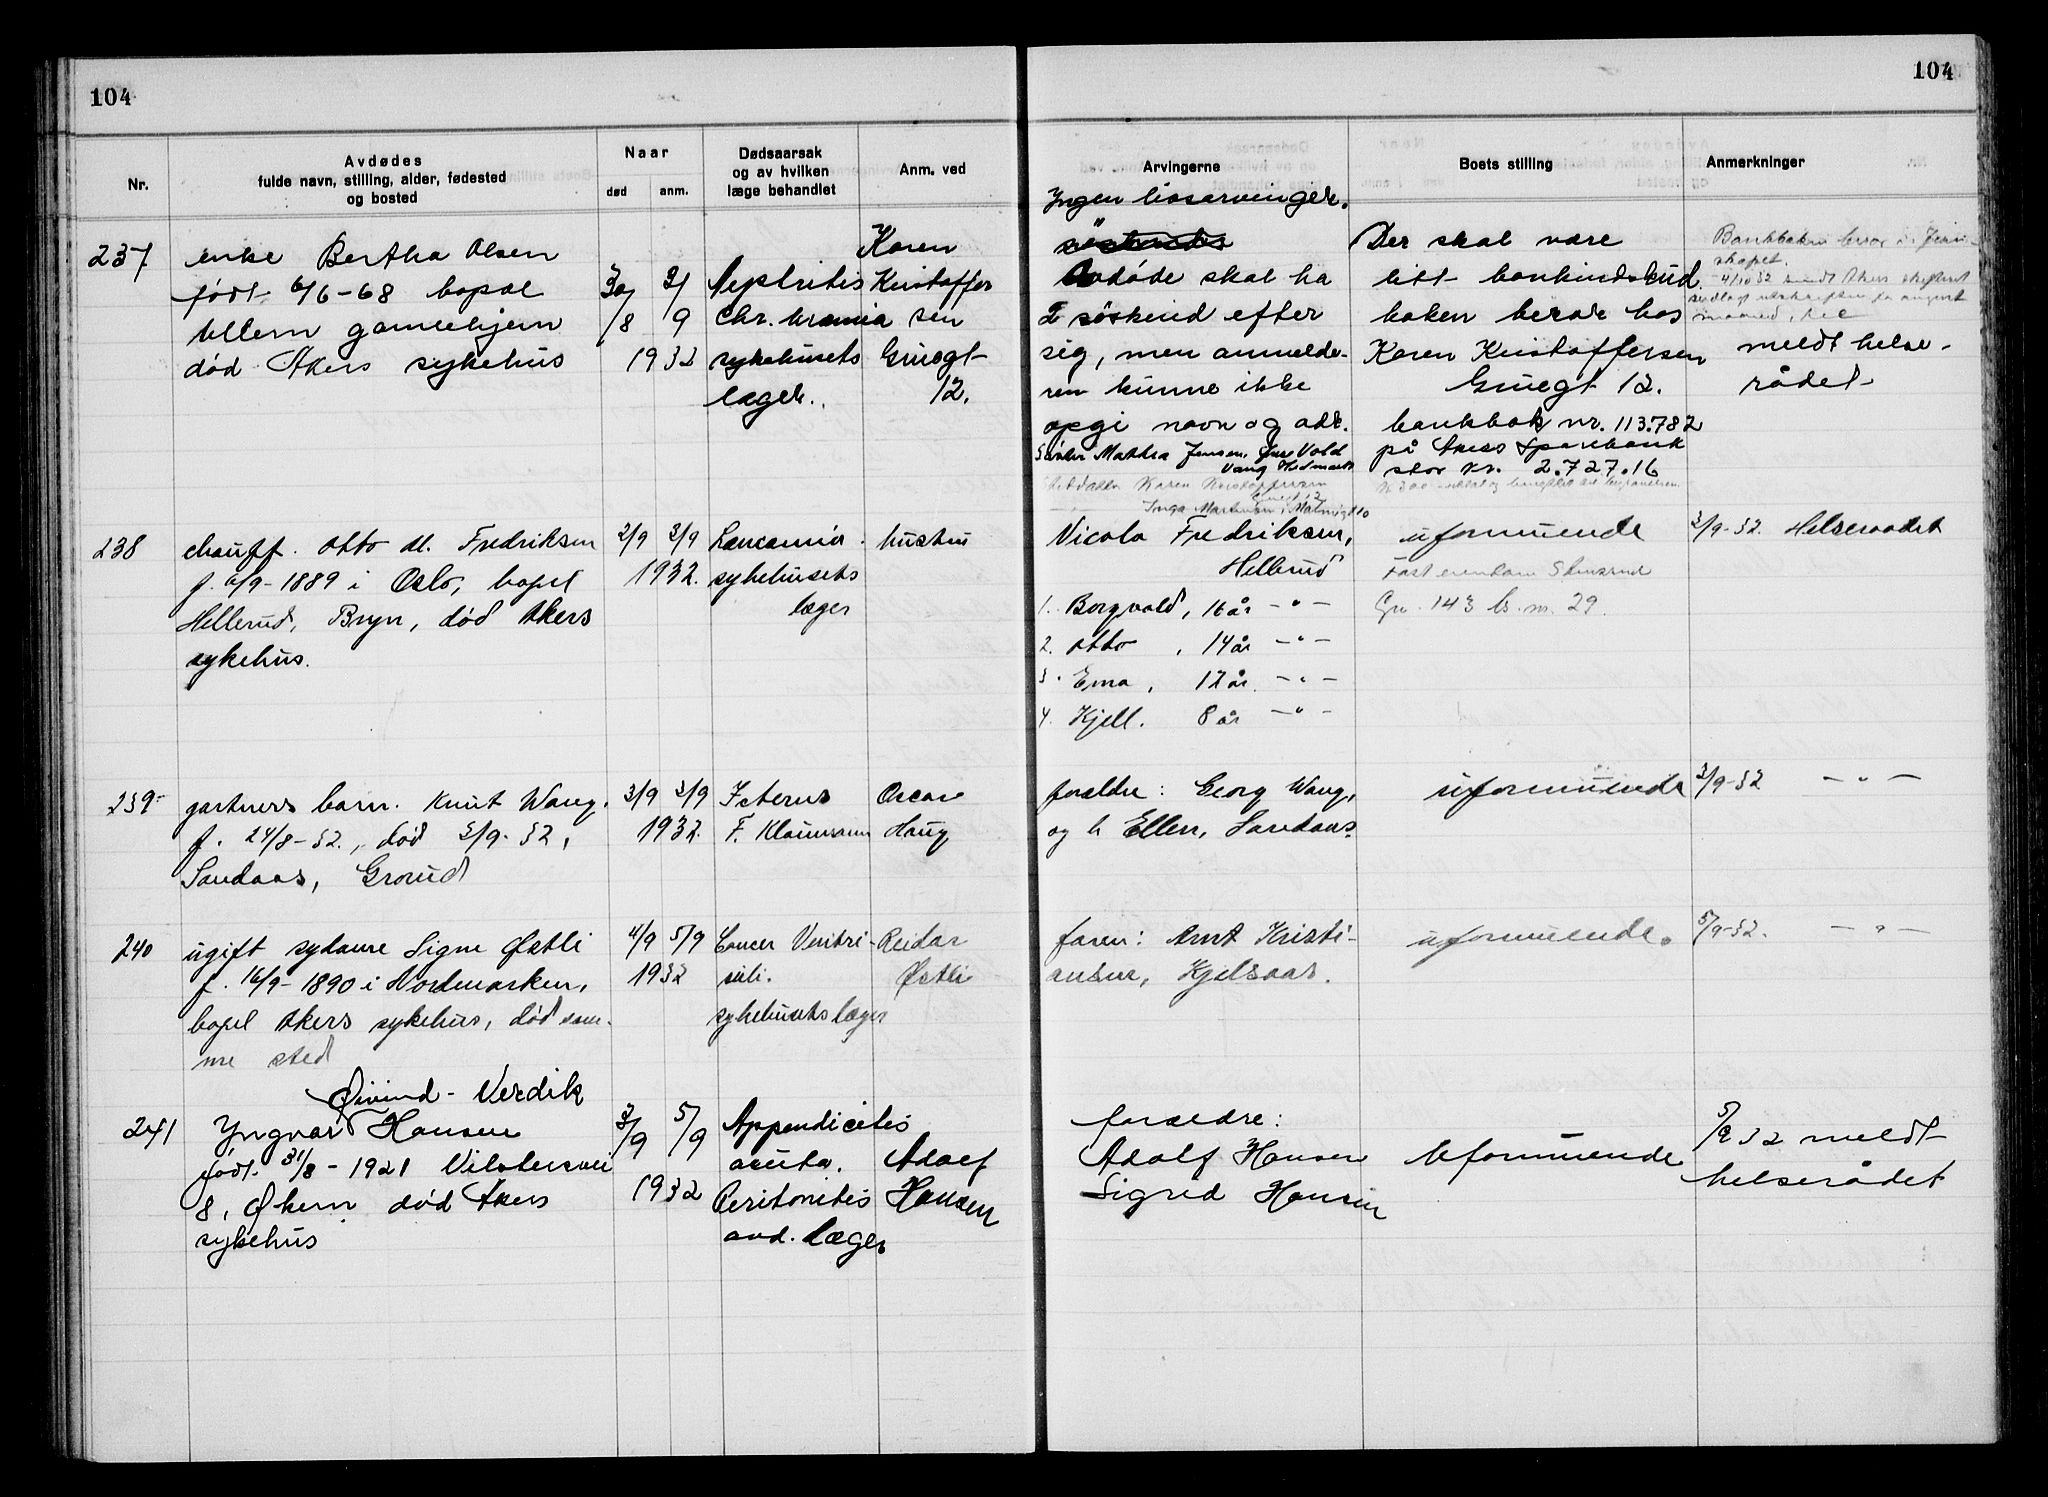 104
104
Nr.
Avdødes
fulde navn, stilling, alder, fødested
og bosted
Naar
død anm.
Dødsaarsak
og av hvilken
læge behandlet
Anm. ved
Arvingerne
Boets stilling
Anmerkninger
237
enke Bertha Olsen
født 6/6-68 bopæl
Ullern gamlehjem
død Akers sykehus
30/8 2/9
1932
Nephritis
Chr. uræmia
sykehusets
læger.
Karen
Kristoffer
sen
Gruegt
12.
Ingen livsarvinger.
Avdøde skal ha
2 søskend efter
sig, men anmelde-
ren kunne ikke
opgi navn og adr.
Søster Mathea Jensen,
Vang Hedmark
Karen Kristoffersen
Gruegt 12
Inga Martinsen, Malmøgt 10
Der skal være
litt bankindskud
boken beror hos
Karen Kristoffersen
Gruegt 12.
bankbok nr. 113.782
på Akers Sparebank
stor kr. 2.727.16
Bankboken beror i
4/10 32 sendt Akers skifteret
meldt helse-
rådet
238
chauff. Otto M. Fredriksen
f. 6/9-1889 i Oslo, bopel
Hellerud, Bryn, død Akers
sykehus.
2/9 3/9
1932.
sykehusets
læger
hustru
Nicola Fredriksen,
Hellerud
1. Borgvald, 16 år -"-
2. Otto, 14 år -"-
3. Erna, 12 år. -"-
4. Kjell. 8 år -"-
uformuende
Fast eiendom Stensrud
Gr. 143 br. nr. 29.
3/9-32. Helseraadet
239
gartners barn. Knut Wang.
f. 24/8-32., død 3/9-32,
Sandaas, Grorud
3/9 3/9
1932.
Icterus
F. Klaumann
Oscar
Haug
forældre: Georg Wang,
og h Ellen, Sandaas.
uformuende
3/9-32 -"-
240
ugift sydame Signe Østli
f. 16/9-1890 i Nordmarken,
bopel Akers sykehus, død sam-
me sted
4/9 5/9
1932
Cancer Ventri-
culi.
sykehusets læger
Reidar
Østli
faren: Arnt Kristi-
ansen, Kjelsaas.
uformuende.
5/9-32. -"-
241
Øivind - Verdik
Yngvar Hansen
født 31/8-1921
8, Økern død Akers
sykehus
3/9 5/9
1932
Appendicitis
acuta.
Peritonitis
avd. læger
Adolf
Hansen
forældre:
Adolf Hansen
Sigrid Hansen
Uformuende
5/9 32 meldt
helserådet